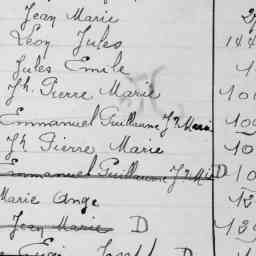 Jean Marie
Léon Jules
Jules Emile
Jh. Pierre Marie
Emmanuel Guillaume Jh Marie
Jh Pierre Marie
Emmanuel Guillaume Jh Mie D
Marie Ange
Jean Marie D
Joseph D